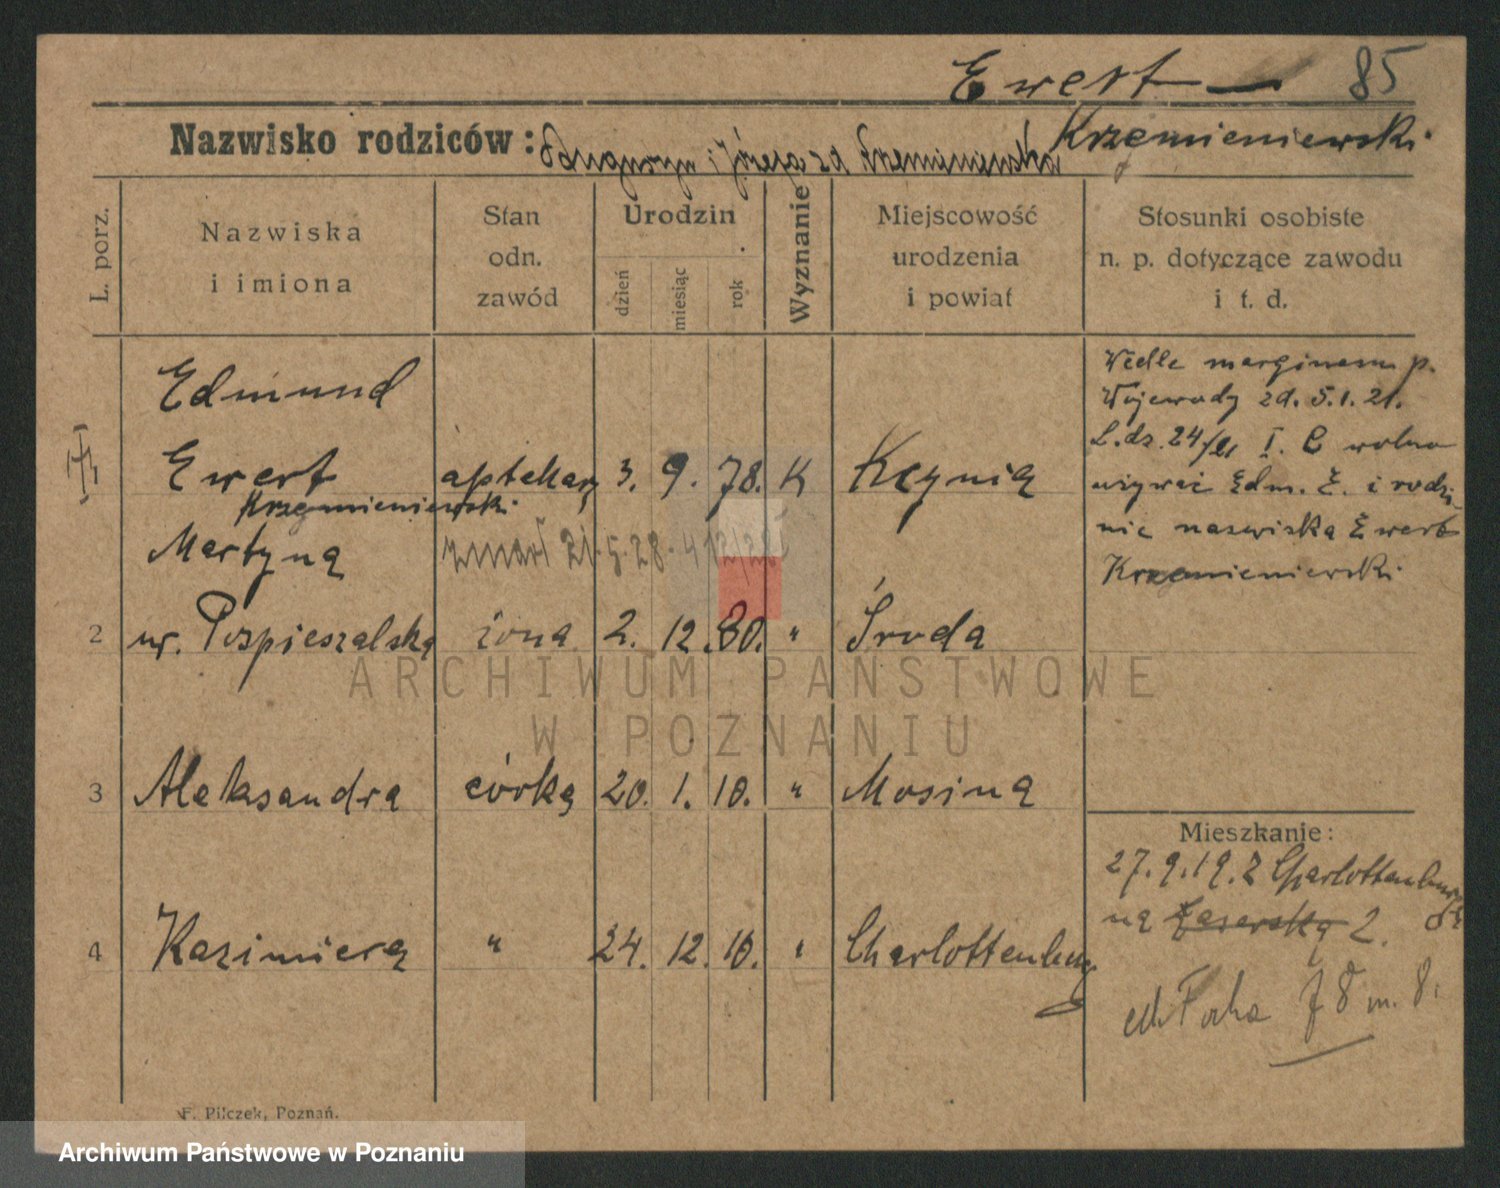 Ewert — 85
Krzemieniewski
Nazwisko rodziców: i Józefa zd Krzemieniewska
L. porz.
Nazwiska
i imiona
Stan
odn.
zawód
Urodzin
dzień
miesiąc
rok
Wyznanie
Miejscowość
urodzenia
i powiat
Stosunki osobiste
n. p. dotyczące zawodu
i t. d.
Edmund
Ewert aptekarz 3. 9. 78. K Kcynia
Krzemieniewski
zmarł 21.5.28.
Martyna
2 ur. Pospieszalska żona 2. 12. 80. " Środa
3 Aleksandra córka 20. 1. 10. " Mosina
4 Kazimiera " 24. 12. 10. " Charlottenburg
Wedle p.
Wojewody zd. 5.1.21.
L.dz. 24/21 I. C wolno
używać Edm. E. i rodzi-
nie nazwiska Ewert
Krzemieniewski
Mieszkanie:
27.9.19. Z Charlottenburg
na 2.
Focha 78 m. 8.
F. Pilczek, Poznań.
ARCHIWUM PAŃSTWOWE
W POZNANIU
Archiwum Państwowe w Poznaniu